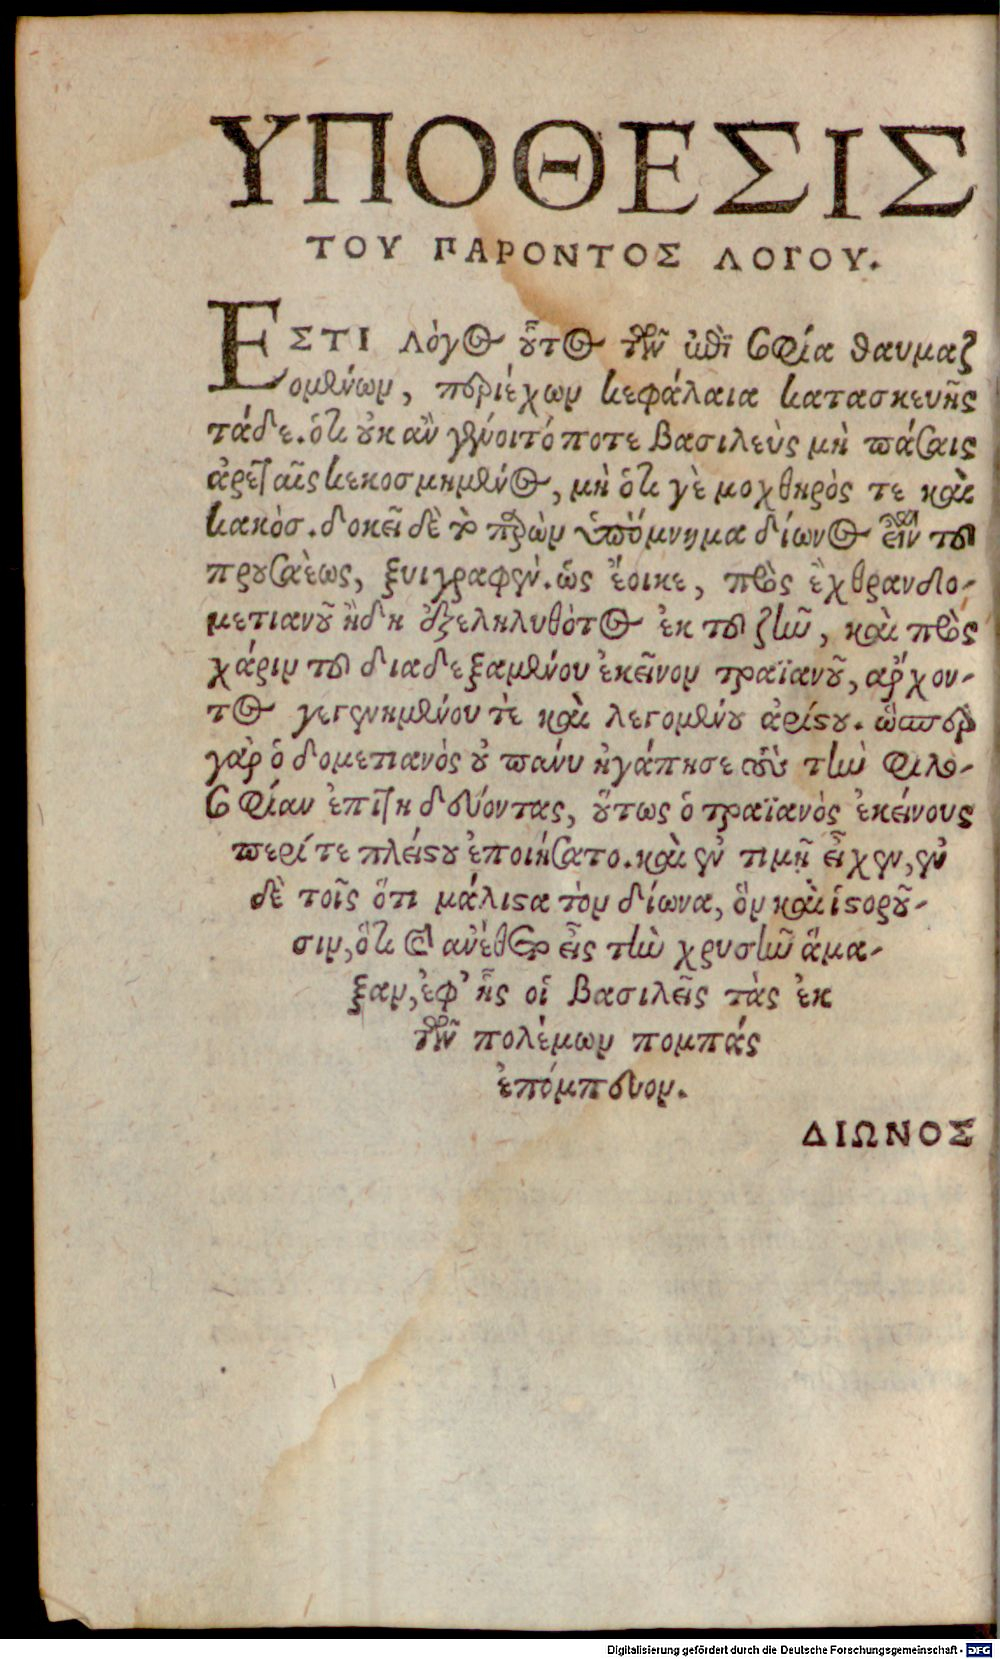 ΥΠΟΘΕΣΙΣ
ΤΟΥ ΠΑΡΟΝΤΟΣ ΛΟΓΟΥ.
ΕΣΤΙ λόγος οὗτος τῶν ἐπὶ σοφίᾳ θαυμαζ
ομένων, περιέχων κεφάλαια κατασκευῆς
τάδε. ὅτι οὐκ ἂν γένοιτό ποτε βασιλεὺς μὴ πάσαις
ἀρεταῖς κεκοσμημένος, μὴ ὅτι γὲ μοχθηρὸς τε καὶ
κακὸσ. δοκεῖ δὲ τὸ παρὸν ὑπόμνημα δίωνος εἶναι τοῦ
προυσαέως, ξυιγραφὲν. ὡς ἔοικε, πρὸς ἔχθραν δο-
μετιανοῦ ἤδη ἐξεληλυθότος ἐκ τοῦ ζῆν, καὶ πρὸς
χάριν τοῦ διαδεξαμένου ἐκεῖνον τραϊανοῦ, ἄρχον-
τος γεγενημένου τὲ καὶ λεγομένου ἀρίστου. ὥσπερ
γὰρ ὁ δομετιανὸς οὐ πάνυ ἠγάπησε τοὺς τὴν φιλο-
σοφίαν ἐπιτηδεύοντας, οὕτως ὁ τραϊανὸς ἐκείνους
περί τε πλείστου ἐποιήσατο. καὶ ἐν τιμῇ εἶχεν, ἐν
δὲ τοῖς ὅτι μάλιστα τὸν δίωνα, ὃν καὶ ἱστοροῦ-
σιν, ὅτι καὶ ἀνέθετο εἰς τὴν χρυσῆν ἅμα-
ξαν, ἐφ᾽ ἧς οἱ βασιλεῖς τὰς ἐκ
τῶν πολέμων πομπάς
ἐπόμπευον.
ΔΙΩΝΟΣ
Digitalisierung gefördert durch die Deutsche Forschungsgemeinschaft - DFG